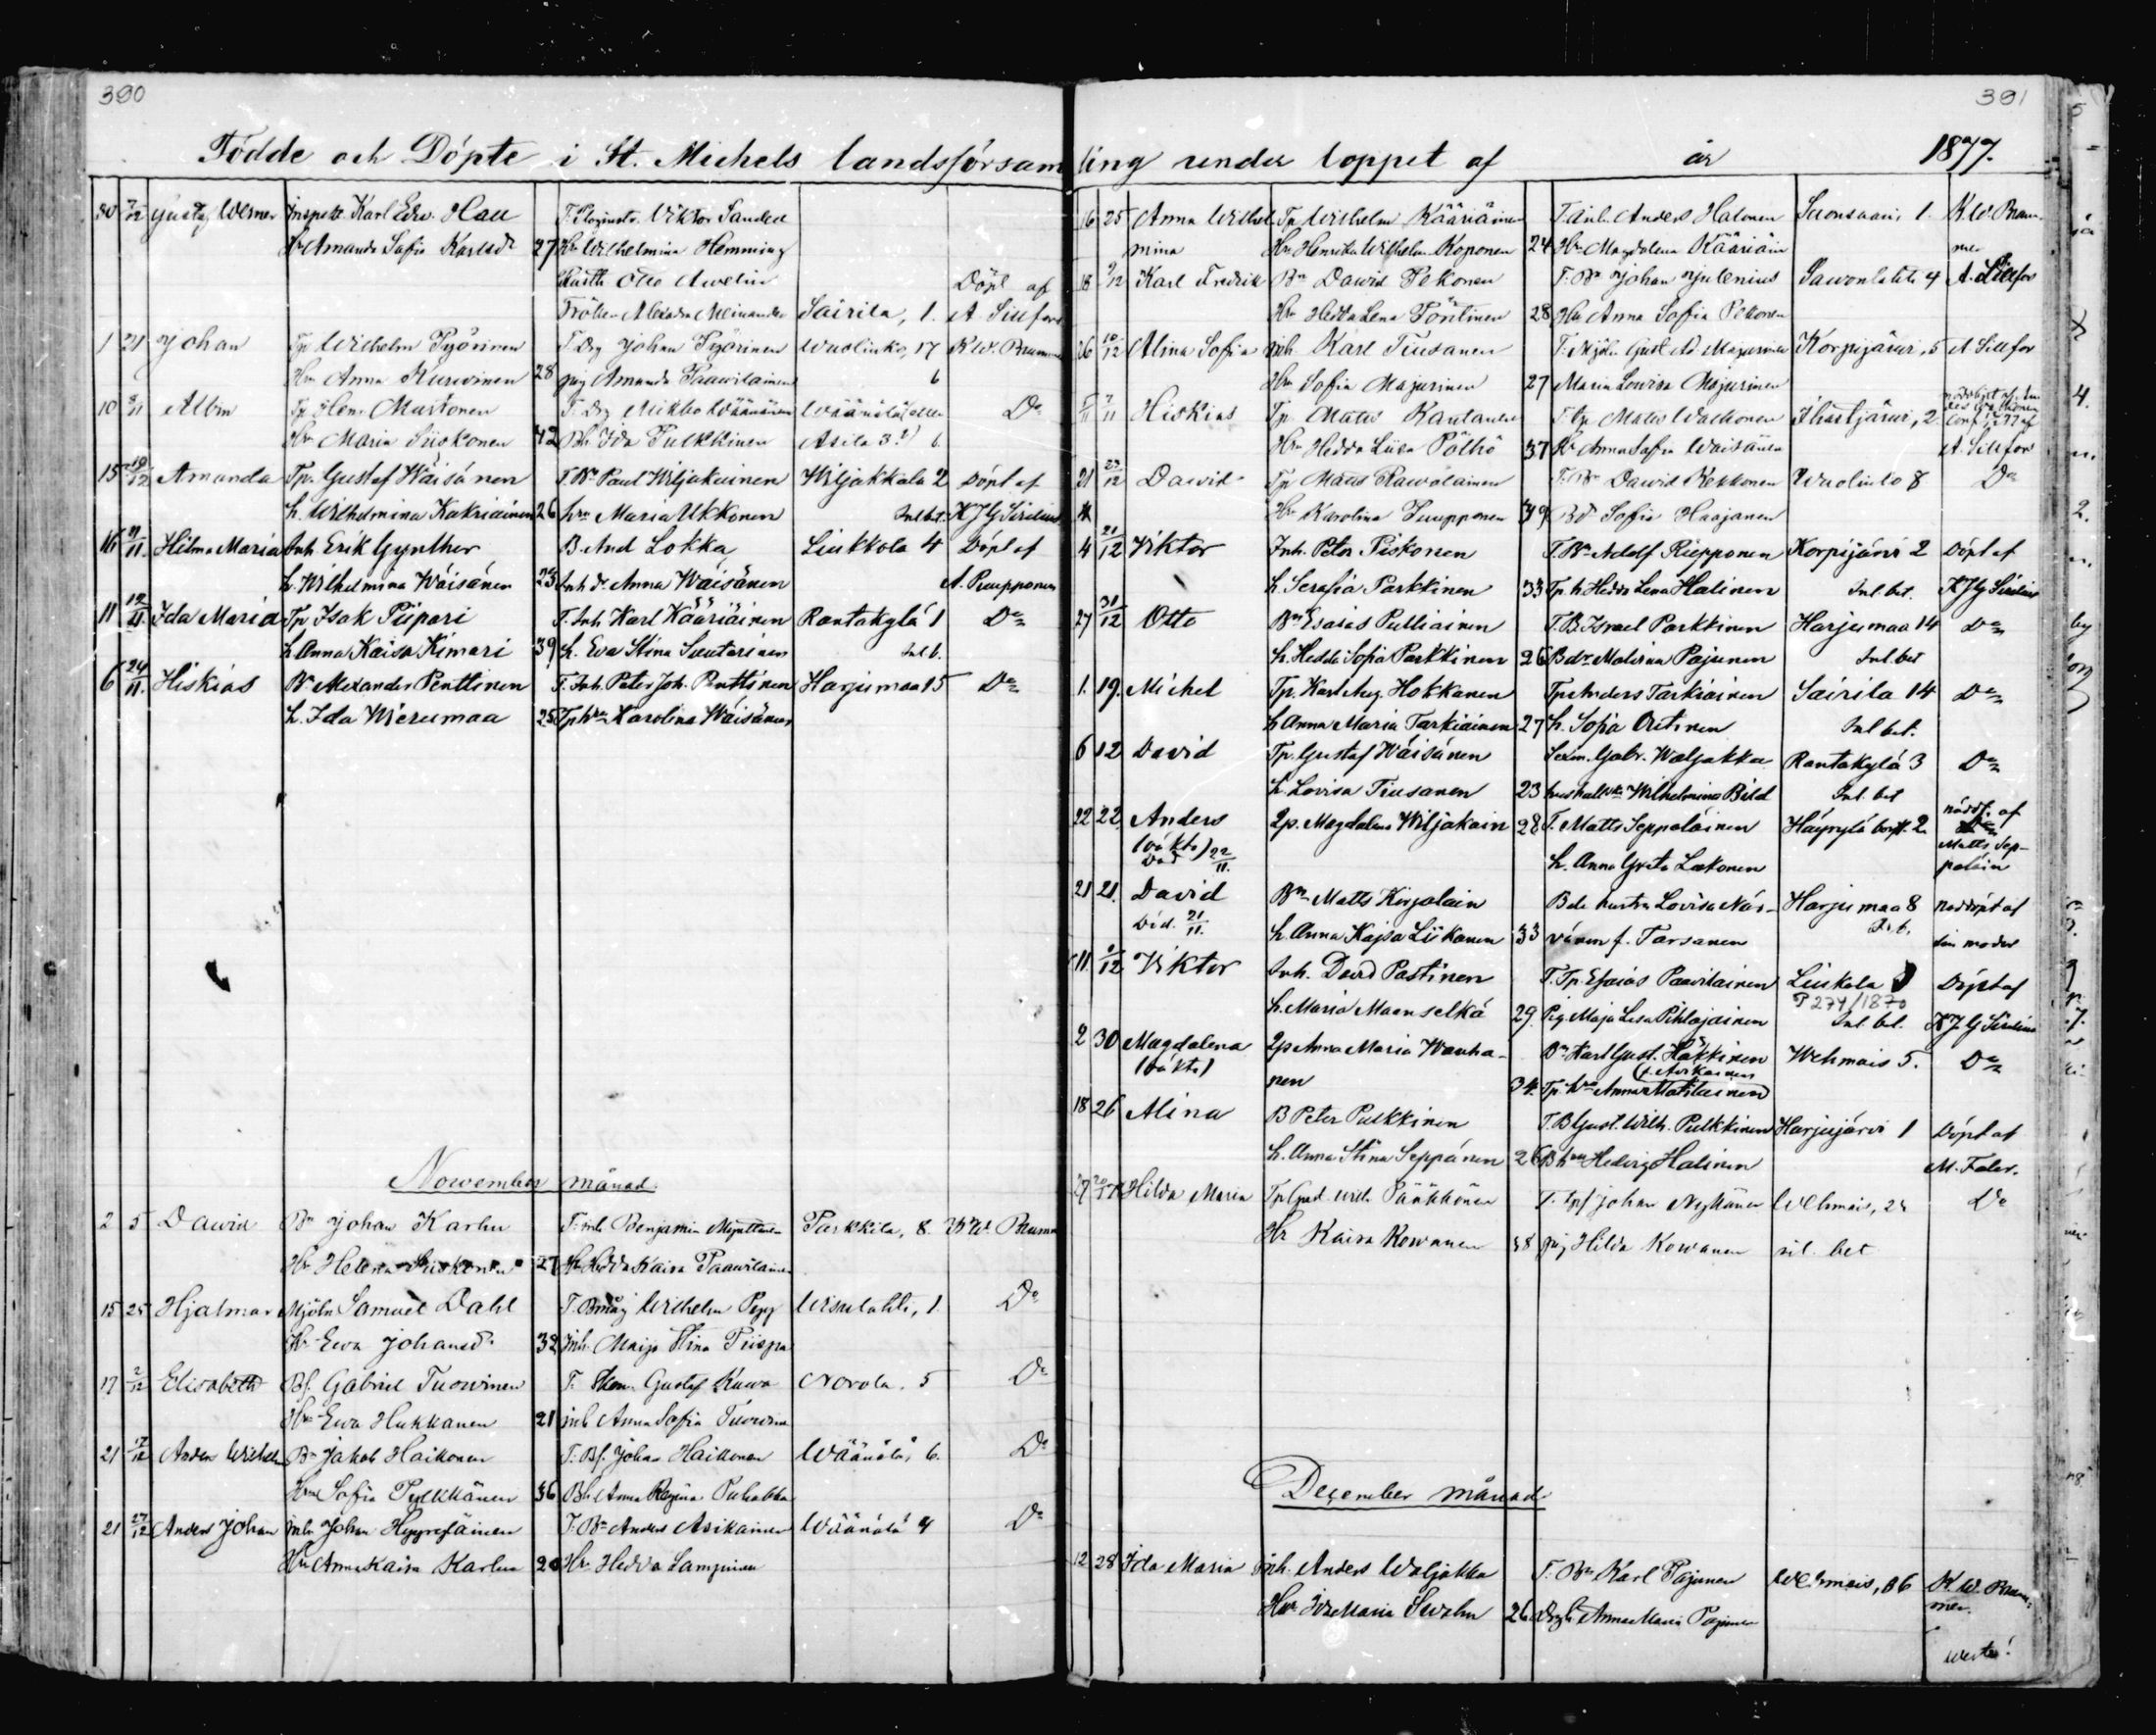 390
Födde och Döpte i St. Michels landsförsam
30 7/12 Gustaf Werner Inspekt. Karl Edw. Hall T. Viktor Sandell
Hu Amanda Sofia Karlsdr 27 Hu Wilhelmina Hemming
Otto Awelin Döpt af
Fröken Alexdra Meinander Sairila, 1. A. Sillfors
1 21 Johan Tp Wilhelm Pyörinen T. Drg Johan Pyörinen Wuolinko, 17 K.W. Brumm
Hu Anna Kurwinen 28 pig Amanda Paawilainen 6
10 8/11 Albin Tp Hen. Mustonen T. Drg Mikko Wäänänen Wäänälä eller Do
Hu Maria Siiskonen 42 Bh. Ida Pulkkinen Asila 3?)
15 10/12 Amanda Tp. Gustaf Wäisänen T. Bn Paul Wiljakainen Wiljakkala 2 Döpt af
h. Wilhelmina Kakriainen 26 hru Maria Ukkonen Inl.bet. K J G Sirelius
16 9/11. Hilma Maria Inh. Erik Gynther B. And Lokka Liukkola 4 Döpt af
h. Wilhelmina Wäisänen 25 Inh. dr Anna Wäisänen A. Ruupponen
11 12/11. Ida Maria Tp Isak Piipari T. Inh. Karl Kääriäinen Rantakylä 1 Do
h. Anna Kaisa Kimari 39 h. Eva Stina Suutarinen Inl.b.
6 24/11. Hiskias Bn Alexander Penttinen T. Inh. Peter Joh. Penttinen Harjumaa 15 Do
h. Ida Wierumaa 25 Tp hru Karolina Wäisänen
November månad.
2 5 Dawid Bn Johan Karhu T. inh Benjamin Parkkila, 8. K.W. Brumm
Hu Helena Siiskonen 27 Hu Hedda Kaisa Paawilainen
15 25 Hjalmar Mjöln Samuel Dahl T. Wilhelm Pepp Wisulahti, 1. Do
Hu Ewa Johansdr 32 Inh. Maija Stina Piispa
17 2/12 Elisabeth Bf. Gabriel Tuowinen T. Gustaf Kuwa Norola, 5 Do
Hu Ewa Hukkanen 21 inh Anna Sofia Tuowinen
21 17/12 Anders Wilhelm Bn Jakob Haikonen T. Bf. Johan Haikonen Wäänälä, 6. Do
Hu Sofia Pylkkänen 36 Bh. Anna Regina Puhakka
21 27/12 Anders Johan Inh. Johan Hyyryläinen T. Bn Anders Asikainen Wäänälä 4 Do
Hu Anna Kaisa Karhu 20 Hu Hedda Lampinen
391
ling under loppet af år 1877.
16 25 Anna Wilhel Tp Wilhelm Kääriäinen T. inh. Anders Halonen Suonsaari 1. K.W. Brum
mina Hu Henrika Wilhelm. Koponen 24 Hu Magdalena Kääriäin mer
18 9/12 Karl Fredrik Bn Dawid Pekonen T. Bn Johan Hjulenius Sawonlahti 4 A. Sillfor
Hu Hedda Lena Pöntinen 28 Hu Anna Sofia Pekonen
26 10/12 Alina Sofia inh. Karl Tiusanen T. Mjöln. Gust. Ad. Majurinen Korpijärvi, 5 A Sillfor
Hu Sofia Majurinen 27 Maria Lowisa Majurinen
5/11 7/11 Hiskias Tp. Mats Kantanen T. Tp. Mats Walkonen Ihastjärvi, 2.
Hu Hedda Liisa Pölhö 37 Hu Anna Sofia Waisänen A. Sillfor
21 23/12 Dawid Tp Mats Rawolainen T. Bn Dawid Kekkonen Wuolinko 8 Do
Hu Karolina Puupponen 39 Bd. Sofia Haajanen
4 21/12 Viktor Inh. Peter Piskonen T. Bn Adolf Riepponen Korpijärvi 2 Döpt af
h. Serafia Parkkinen 33 Tp. h. Hedda Lena Halinen Inl. bet. K J G Sirelius
27 31/12 Otto Bn Esaias Pulliainen T. B. Israel Parkkinen Harjumaa 14 Do
h. Hedda Sofia Parkkinen 26 Bdr Malviina Pajunen Inl. bet
1. 19. Michel Tp. Karl Aug. Hokkanen Tp Anders Tarkiainen Sairila 14 Do
h Anna Maria Tarkiainen 27 h. Sofia Outinen Inl bet.
6 12 David Tp. Gustaf Wäisänen Sexm. Gabr. Waljakka Rantakylä 3 Do
h. Lovisa Tiusanen 23 hushållska Wilhelmina Bild Inl. bet
22 22. Anders Qp. Magdalena Wiljakain 28 T. Matts Seppäläinen Häyrylä 2. nöddt. af
(oäkta) Matts Sep-
Död 22/11. h. Anna Greta Laitonen päläin
21 21. David Bn Matts Kirjalain Bde hustru Lovisa När- Harjumaa 8 nöddöpt af
Död. 21/11. h. Anna Kajsa Liikanen 33 vänen f. Tarsanen In.b. sin moder
11. 9/12 Viktor Inh. David Pastinen T. Tp. Esaias Paavilainen Liukola Döpt af
h. Maria Maanselkä 29. Pig. Maja Lisa Pihlajainen P 274/1870 Inl. bet. K J G Sirelius
2 30 Magdalena Qp Anna Maria Wanha- Bn Karl Gust. Häkkinen Wehmais 5. Do
(oäkta) nen 34. Tp. hru Anna Matilainen (f. Asikainen
18 26 Alina B Peter Pulkkinen T. B Gust. Wilh. Pulkkinen Harjujärvi 1 Döpt af
h. Anna Stina Seppänen 26 B hru Hedvig Halinen M. Faler.
Hilda Maria Tp Gust Wilh. Pääkkönen T. Johan Nykänen Wehmais, 2 Do
Hu Kaisa Kowanen 38 pig Hilda Kowanen inl. bet
December månad
12 28 Ida Maria Inh. Anders Waljakka T. Bn Karl Pajunen Wehmais, 6 K. W. Brum-
Hu Ida Maria Swahn 26. Anna Maria Pajunen mer.
werte!